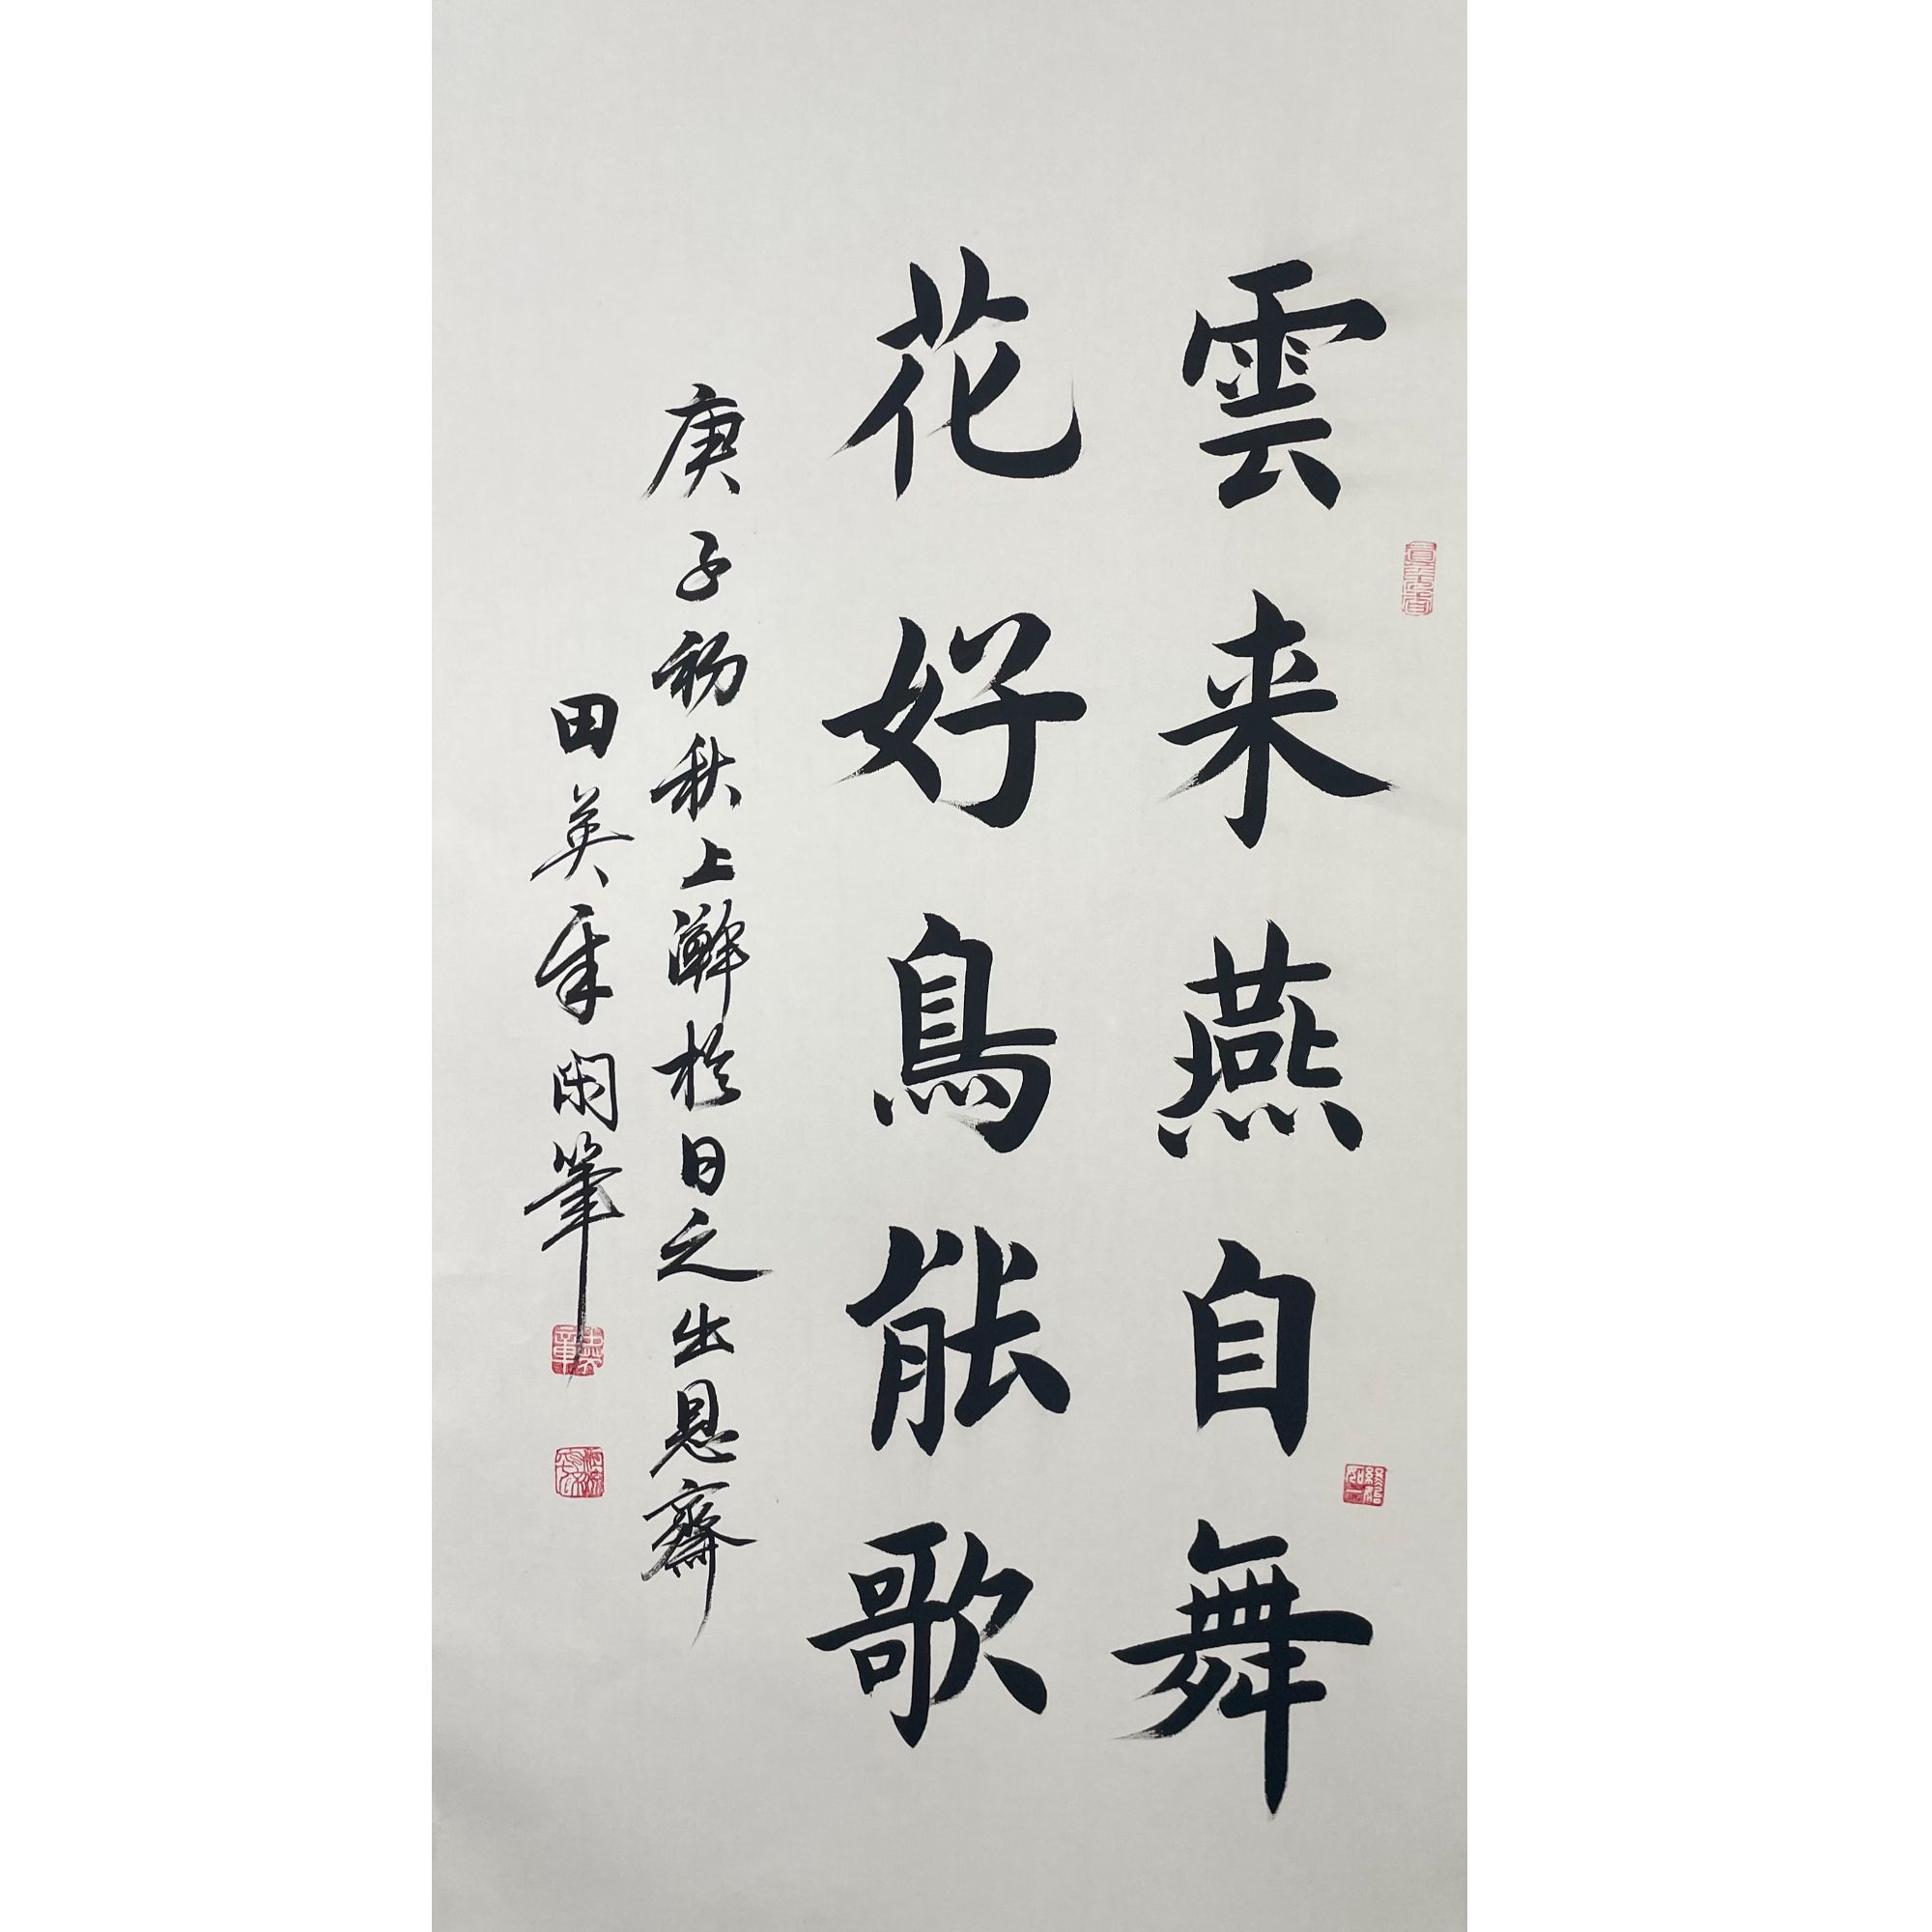 雲来燕自舞
花好鳥能歌
庚子初秋上澣於日之出恩齋
田英章閑筆